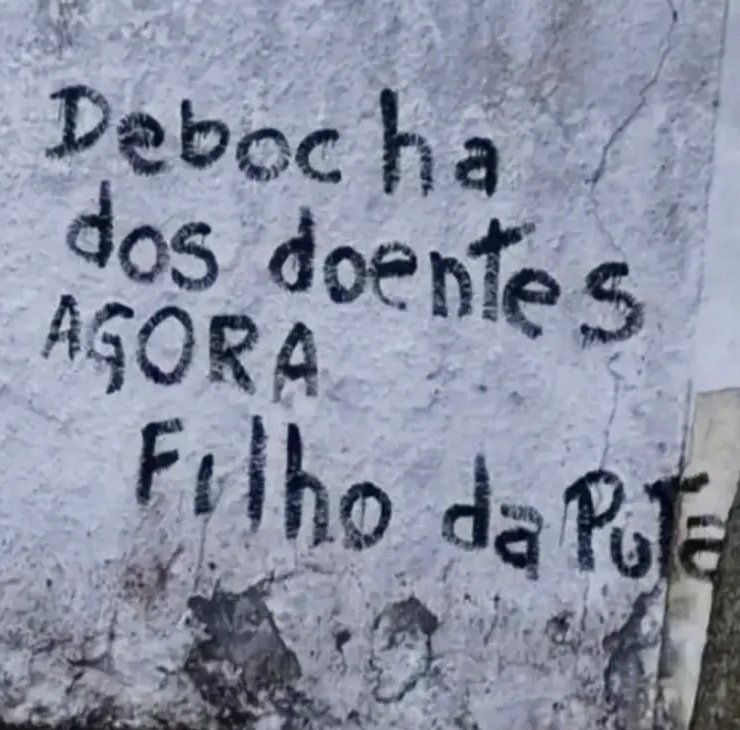 Debocha
dos doentes
AGORA
Filho da Puta